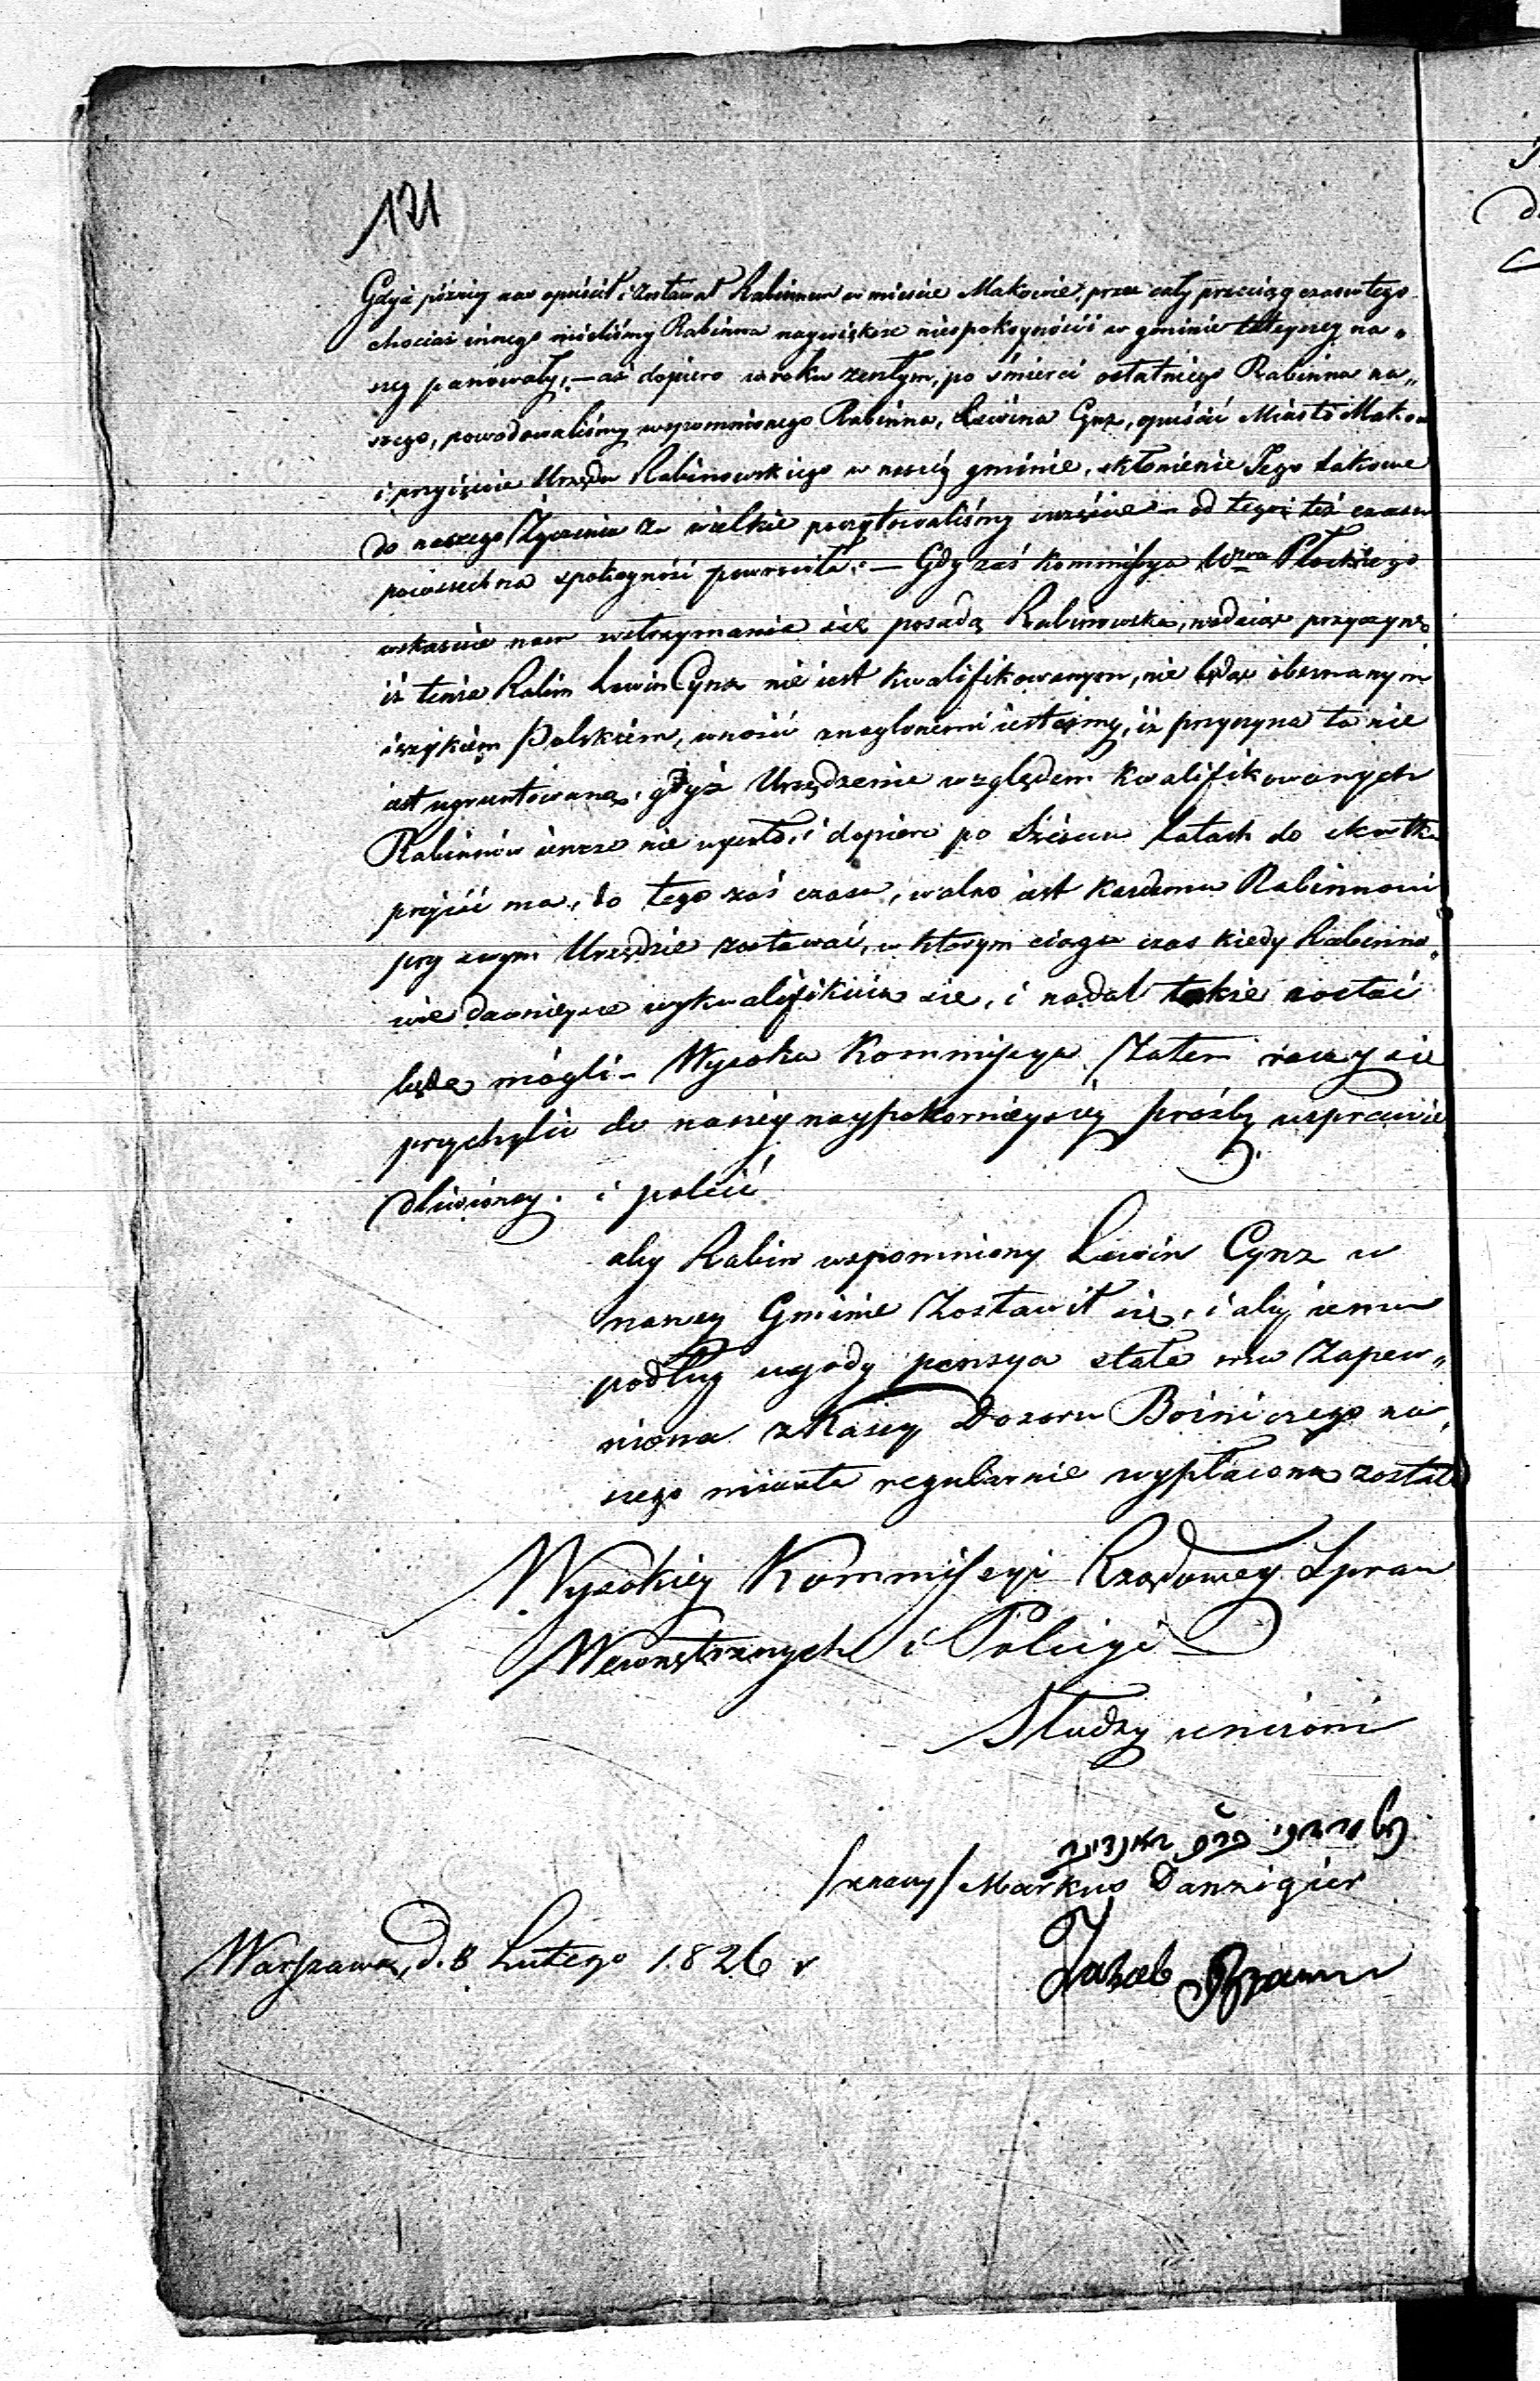 121
Gdyż później nas opuścił i zostawał Rabinem w mieście Makowie, przez cały przeciąg czasu tego
chociaż innego mieliśmy Rabinna naywiększe niespokoyności w gminie tuteyszey na„
szey panowały, — aż dopiero w roku zeszłym, po śmierci ostatniego Rabinna na„
szego, powodowaliśmy wspomnionego Rabinna, Lewina Cynz, opuścić Miasto Maków
i przyięcie Urzędu Rabinowskiego w naszéy gminie, skłonienie Jego takowe
do naszego Życzenia za wielkie poczytowaliśmy szczęście — od tego też czasu
powszechna spokoyność powróciła. — Gdy zaś Kommissya Wztwa Płockiego
wskazuie nam wstrzymanie się z posadą Rabinowską, wdaiąc przyczynę
iż tenże Rabin Lewin Cynz nie iest kwalifikowanym, nie będąc obeznanym
ięzykiem Polskiem, wnosić znaglonemi iesteśmy, iż przyczyna ta nie
iest ugruntowaną, gdyż Urządzenie względem kwalifikowanych
Rabinnów ieszcze nie wyszło, i dopiero po sześciu latach do skutku
przyiść ma, do tego zaś czasu, wolno iest każdemu Rabinnowi
przy swym Urzędzie zostawać, w którym ciągu czas kiedy Rabinno„
wie dawnieysze wykwalifikuią się, i nadal takie zostać
będą mógli — Wysoka Kommissya Zatem raczy się
przychylić do naszéy naypokornieyszéy prośby usprawie
dliwioney. i polecić
aby Rabin wspomniony Lewin Cynz w
naszey Gminie Zostawił się, i aby iemu
podług ugody pensya stała mu Zapew„
niona z Kassy Dozoru Bożniczego na„
szego miasta regularnie wypłacona została
Wysokiey Kommissyi Rządowey Spraw
Wewnętrznych i Policyi
Słudzy uniżeni
/znaczy/ Markus Danzigier
Jakob Braun
Warszawa, d. 8 Lutego 1826 r